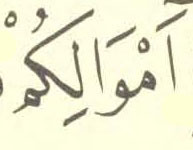 اَمْوَالِكُمْ